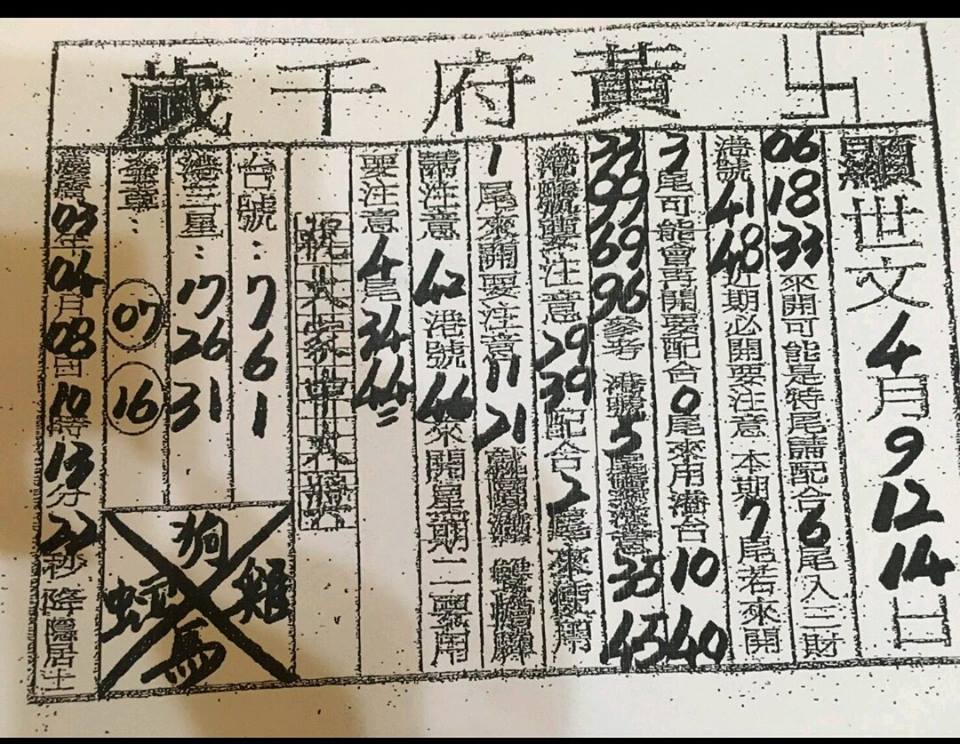 卍黃府千歲
顯世文4月9 12 14日
06 18 33來開可能是特尾請配合6尾入三財
港號41 48近期必開要注意 本期7尾若來開
3尾可能會再開要配合0尾來用港台10 40
33 99 69 96參考 港 5尾 35 45
港號要注意29 39配合2尾來 用
1尾來開要注意11 21
需注意42港號44來開星期二要用
要注意4尾34 44=
祝大家中大獎
台號:7 6 1
港三星:17 26 31
:07 16
狗 雞 馬
03年04月08日10時13分22秒降隱居士